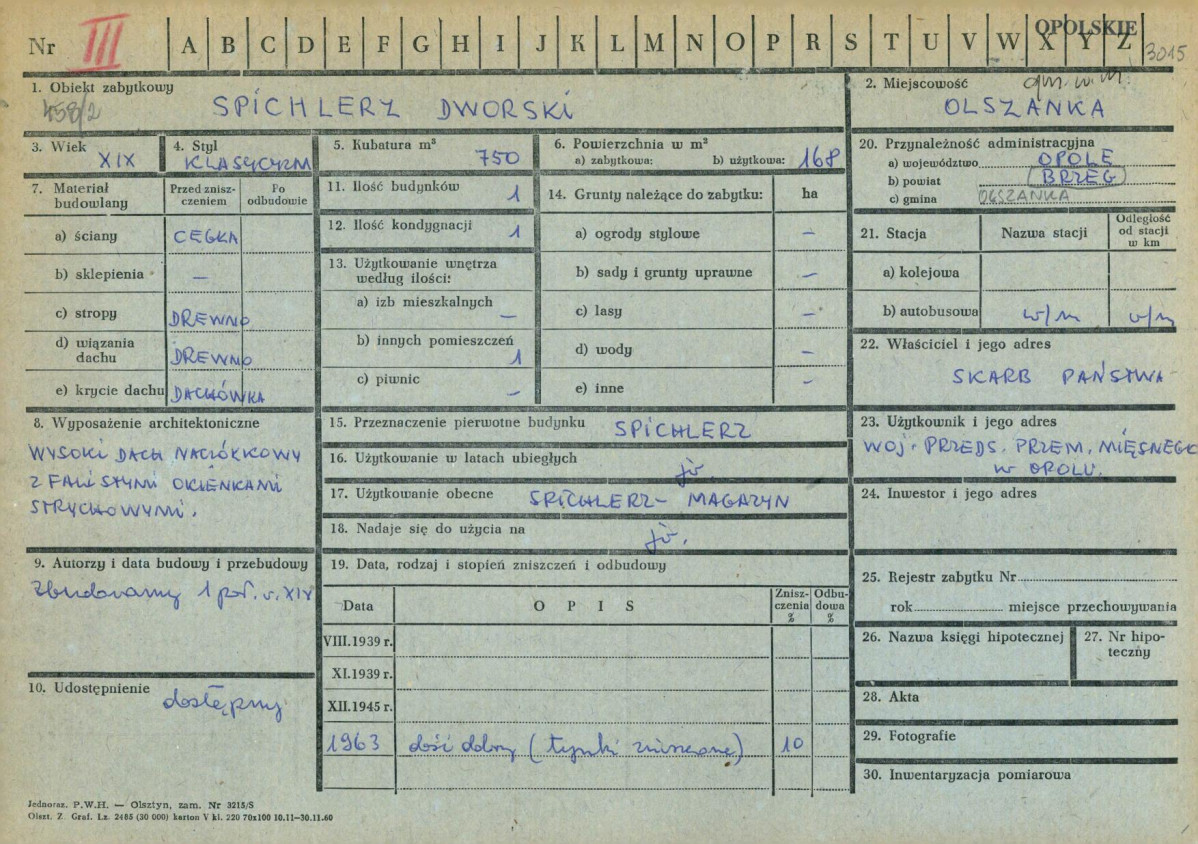 Nr III A B C D E F G H I J K L M N O P R S T U V W X Y Z
OPOLSKIE
3015
1. Obiekt zabytkowy
458/2
SPICHLERZ DWORSKI
2. Miejscowość
gm. w m.
OLSZANKA
3. Wiek
XIX
4. Styl
KLASYCYZM
5. Kubatura m³
750
6. Powierzchnia w m²
a) zabytkowa: b) użytkowa: 168
20. Przynależność administracyjna
a) województwo OPOLE
b) powiat BRZEG
c) gmina OLSZANKA
7. Materiał budowlany
Przed zniszczeniem
Po odbudowie
a) ściany CEGŁA
b) sklepienia –
c) stropy DREWNO
d) wiązania dachu DREWNO
e) krycie dachu DACHÓWKA
11. Ilość budynków 1
12. Ilość kondygnacji 1
13. Użytkowanie wnętrza według ilości:
a) izb mieszkalnych –
b) innych pomieszczeń 1
c) piwnic –
14. Grunty należące do zabytku: ha
a) ogrody stylowe –
b) sady i grunty uprawne –
c) lasy –
d) wody –
e) inne –
21. Stacja
Nazwa stacji
Odległość od stacji w km
a) kolejowa
b) autobusowa w/m w/m
22. Właściciel i jego adres
SKARB PAŃSTWA
8. Wyposażenie architektoniczne
WYSOKI DACH NACIÓŁKOWY
Z FALISTYMI OKIENKAMI
STRYCHOWYMI.
15. Przeznaczenie pierwotne budynku SPICHLERZ
16. Użytkowanie w latach ubiegłych jw.
17. Użytkowanie obecne SPICHLERZ – MAGAZYN
18. Nadaje się do użycia na jw.
23. Użytkownik i jego adres
WOJ. PRZEDS. PRZEM. MIĘSNEGO
W OPOLU.
24. Inwestor i jego adres
9. Autorzy i data budowy i przebudowy
Zbudowany 1 poł. w. XIX
10. Udostępnienie
dostępny
19. Data, rodzaj i stopień zniszczeń i odbudowy
Data
O P I S
Zniszczenia %
Odbudowa %
VIII.1939 r.
XI.1939 r.
XII.1945 r.
1963 dość dobry (tynki zniszczone) 10
25. Rejestr zabytku Nr
rok miejsce przechowywania
26. Nazwa księgi hipotecznej
27. Nr hipoteczny
28. Akta
29. Fotografie
30. Inwentaryzacja pomiarowa
Jednoraz. P.W.H. — Olsztyn, zam. Nr 3215/S
Olszt. Z. Graf. Lz. 2485 (30 000) karton V kl. 220 70x100 10.11–30.11.60